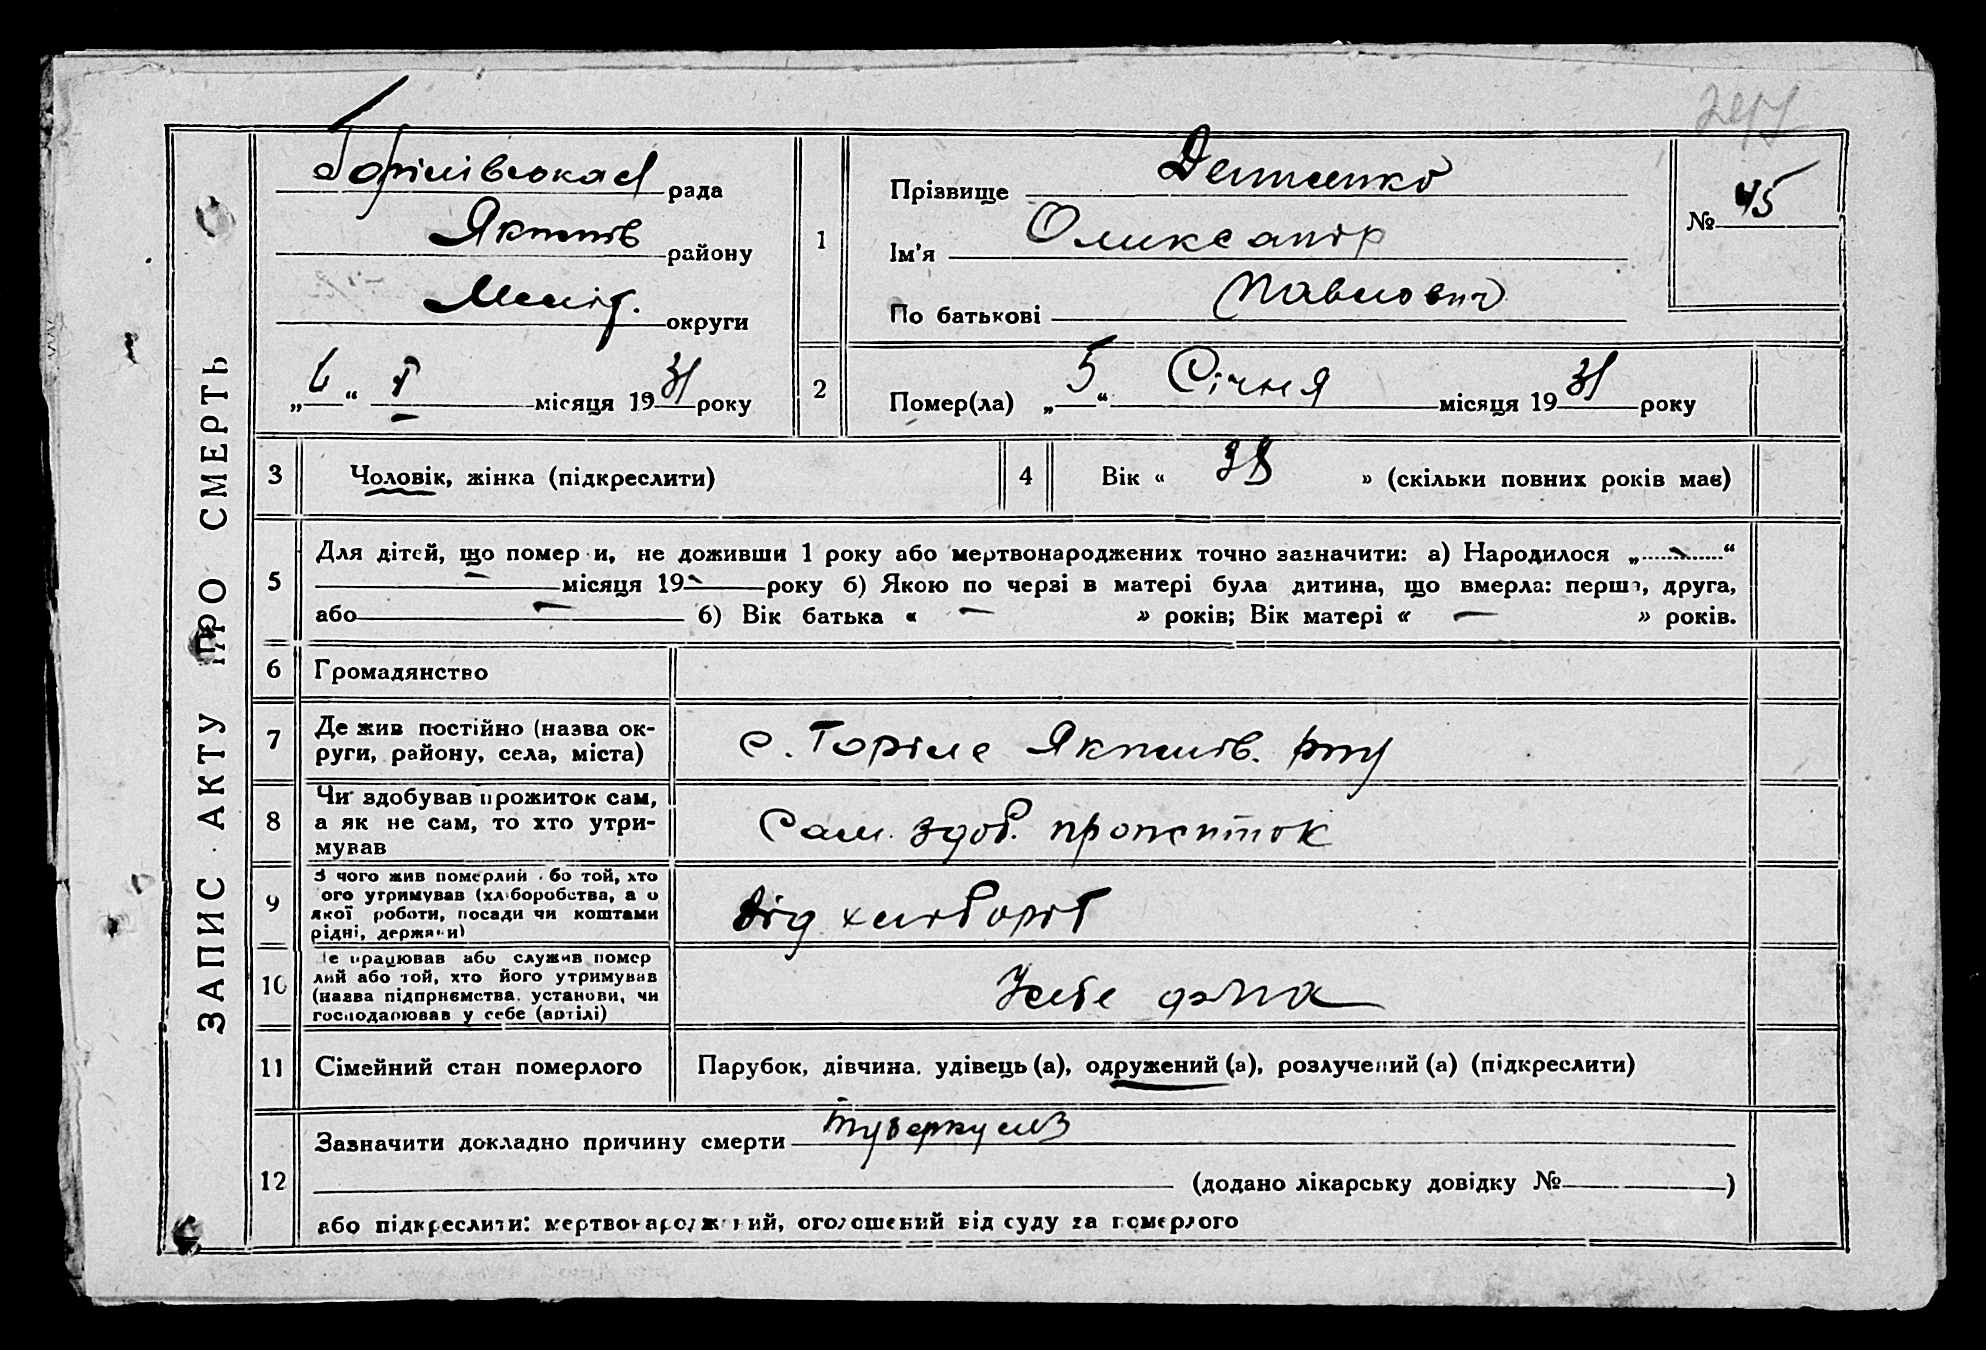 ЗАПИС АКТУ ПРО СМЕРТЬ
Горілівська рада
району
округи
„6“ I місяця 1931 року
1
Прізвище
Ім'я Олександр
По батькові Павлович
№ 45
2
Помер(ла) „5“ Січня місяця 1931 року
3
Чоловік, жінка (підкреслити)
4
Вік « 38 » (скільки повних років має)
5
Для дітей, що померли, не доживши 1 року або мертвонароджених точно зазначити: а) Народилося „ - “
- місяця 19 - року б) Якою по черзі в матері була дитина, що вмерла: перша, друга,
або - б) Вік батька « — » років; Вік матері « — » років.
6
Громадянство
7
Де жив постійно (назва ок-
руги, району, села, міста)
с. Горіле
8
Чи здобував прожиток сам,
а як не сам, то хто утри-
мував
Сам здоб. прожиток
9
З чого жив померлий або той, хто
його утримував (хліборобства, з
якої роботи, посади чи коштами
рідні, держави)
від хлібороб
10
Де працював або служив помер
лий або той, хто його утримував
(назва підприємства, установи, чи
господарював у себе (артілі)
У себе дома
11
Сімейний стан померлого
Парубок, дівчина, удівець (а), одружений (а), розлучений (а) (підкреслити)
12
Зазначити докладно причину смерти туберкульоз
(додано лікарську довідку № )
або підкреслити: мертвонароджений, оголошений від суду за померлого